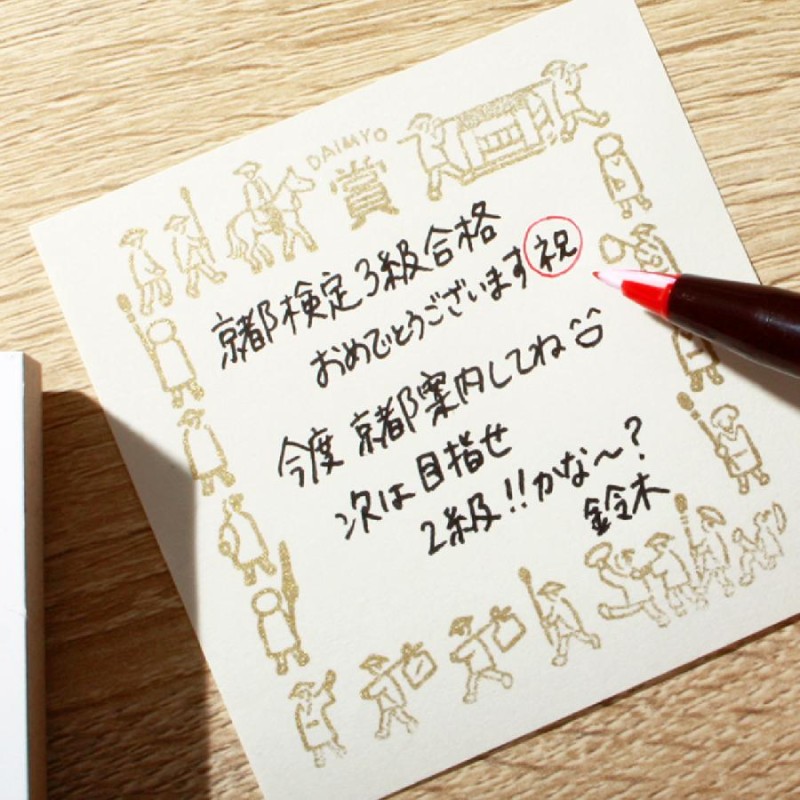 DAIMYO
賞
京都検定3級合格
おめでとうございます 祝
今度 京都案内してね
次は目指せ
2級!!かな〜?
鈴木